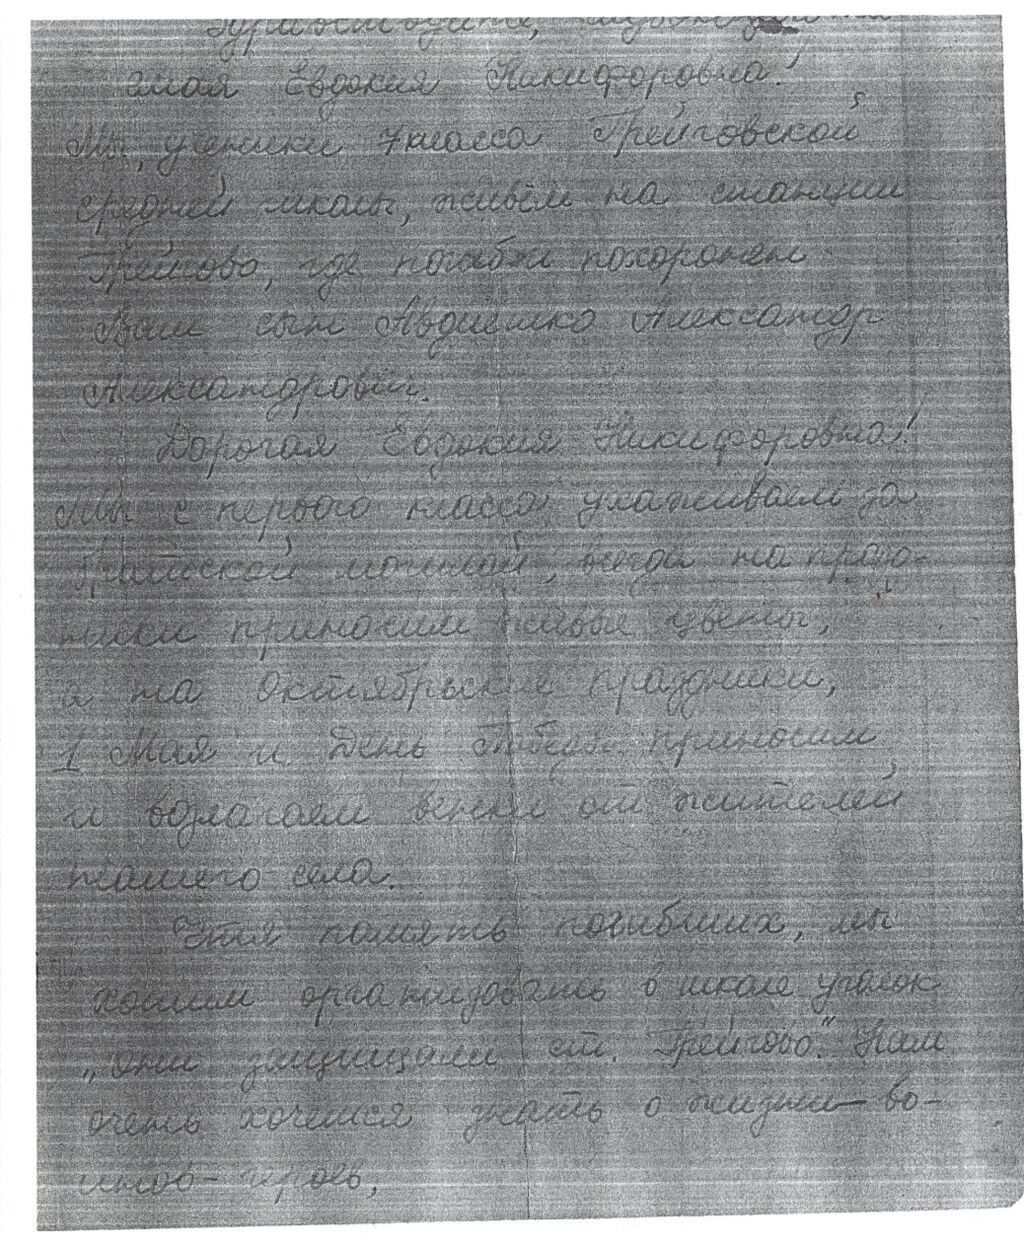 Здравствуйте, многоува
емая Евдокия Никифоровна!
Мы, ученики 7 класса Грейговской
средней школы, живём на станции
Грейгово, где погиб и похоронен
Ваш сын Авдиенко Александр
Александрович.
Дорогая Евдокия Никифоровна!
Мы с первого класса ухаживаем за
братской могилой, всегда на празд-
ники приносим живые цветы,
а на Октябрьские праздники,
1 Мая и День Победы приносим
и возлагаем венки от жителей
нашего села.
Чтя память погибших, мы
хотим организовать в школе уголок
„Они защищали ст. Грейгово." Нам
очень хочется знать о жизни во-
инов-героев,